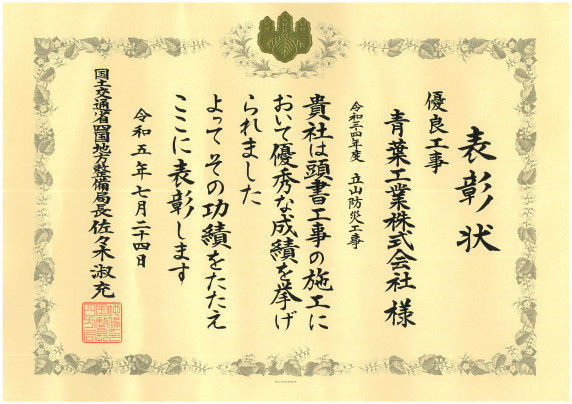 表彰状
優良工事
青葉工業株式会社 様
令和三・四年度 立山防災工事
貴社は頭書工事の施工に
おいて優秀な成績を挙げ
られました
よってその功績をたたえ
ここに表彰します
令和五年七月二十四日
国土交通省四国地方整備局長 佐々木 淑充